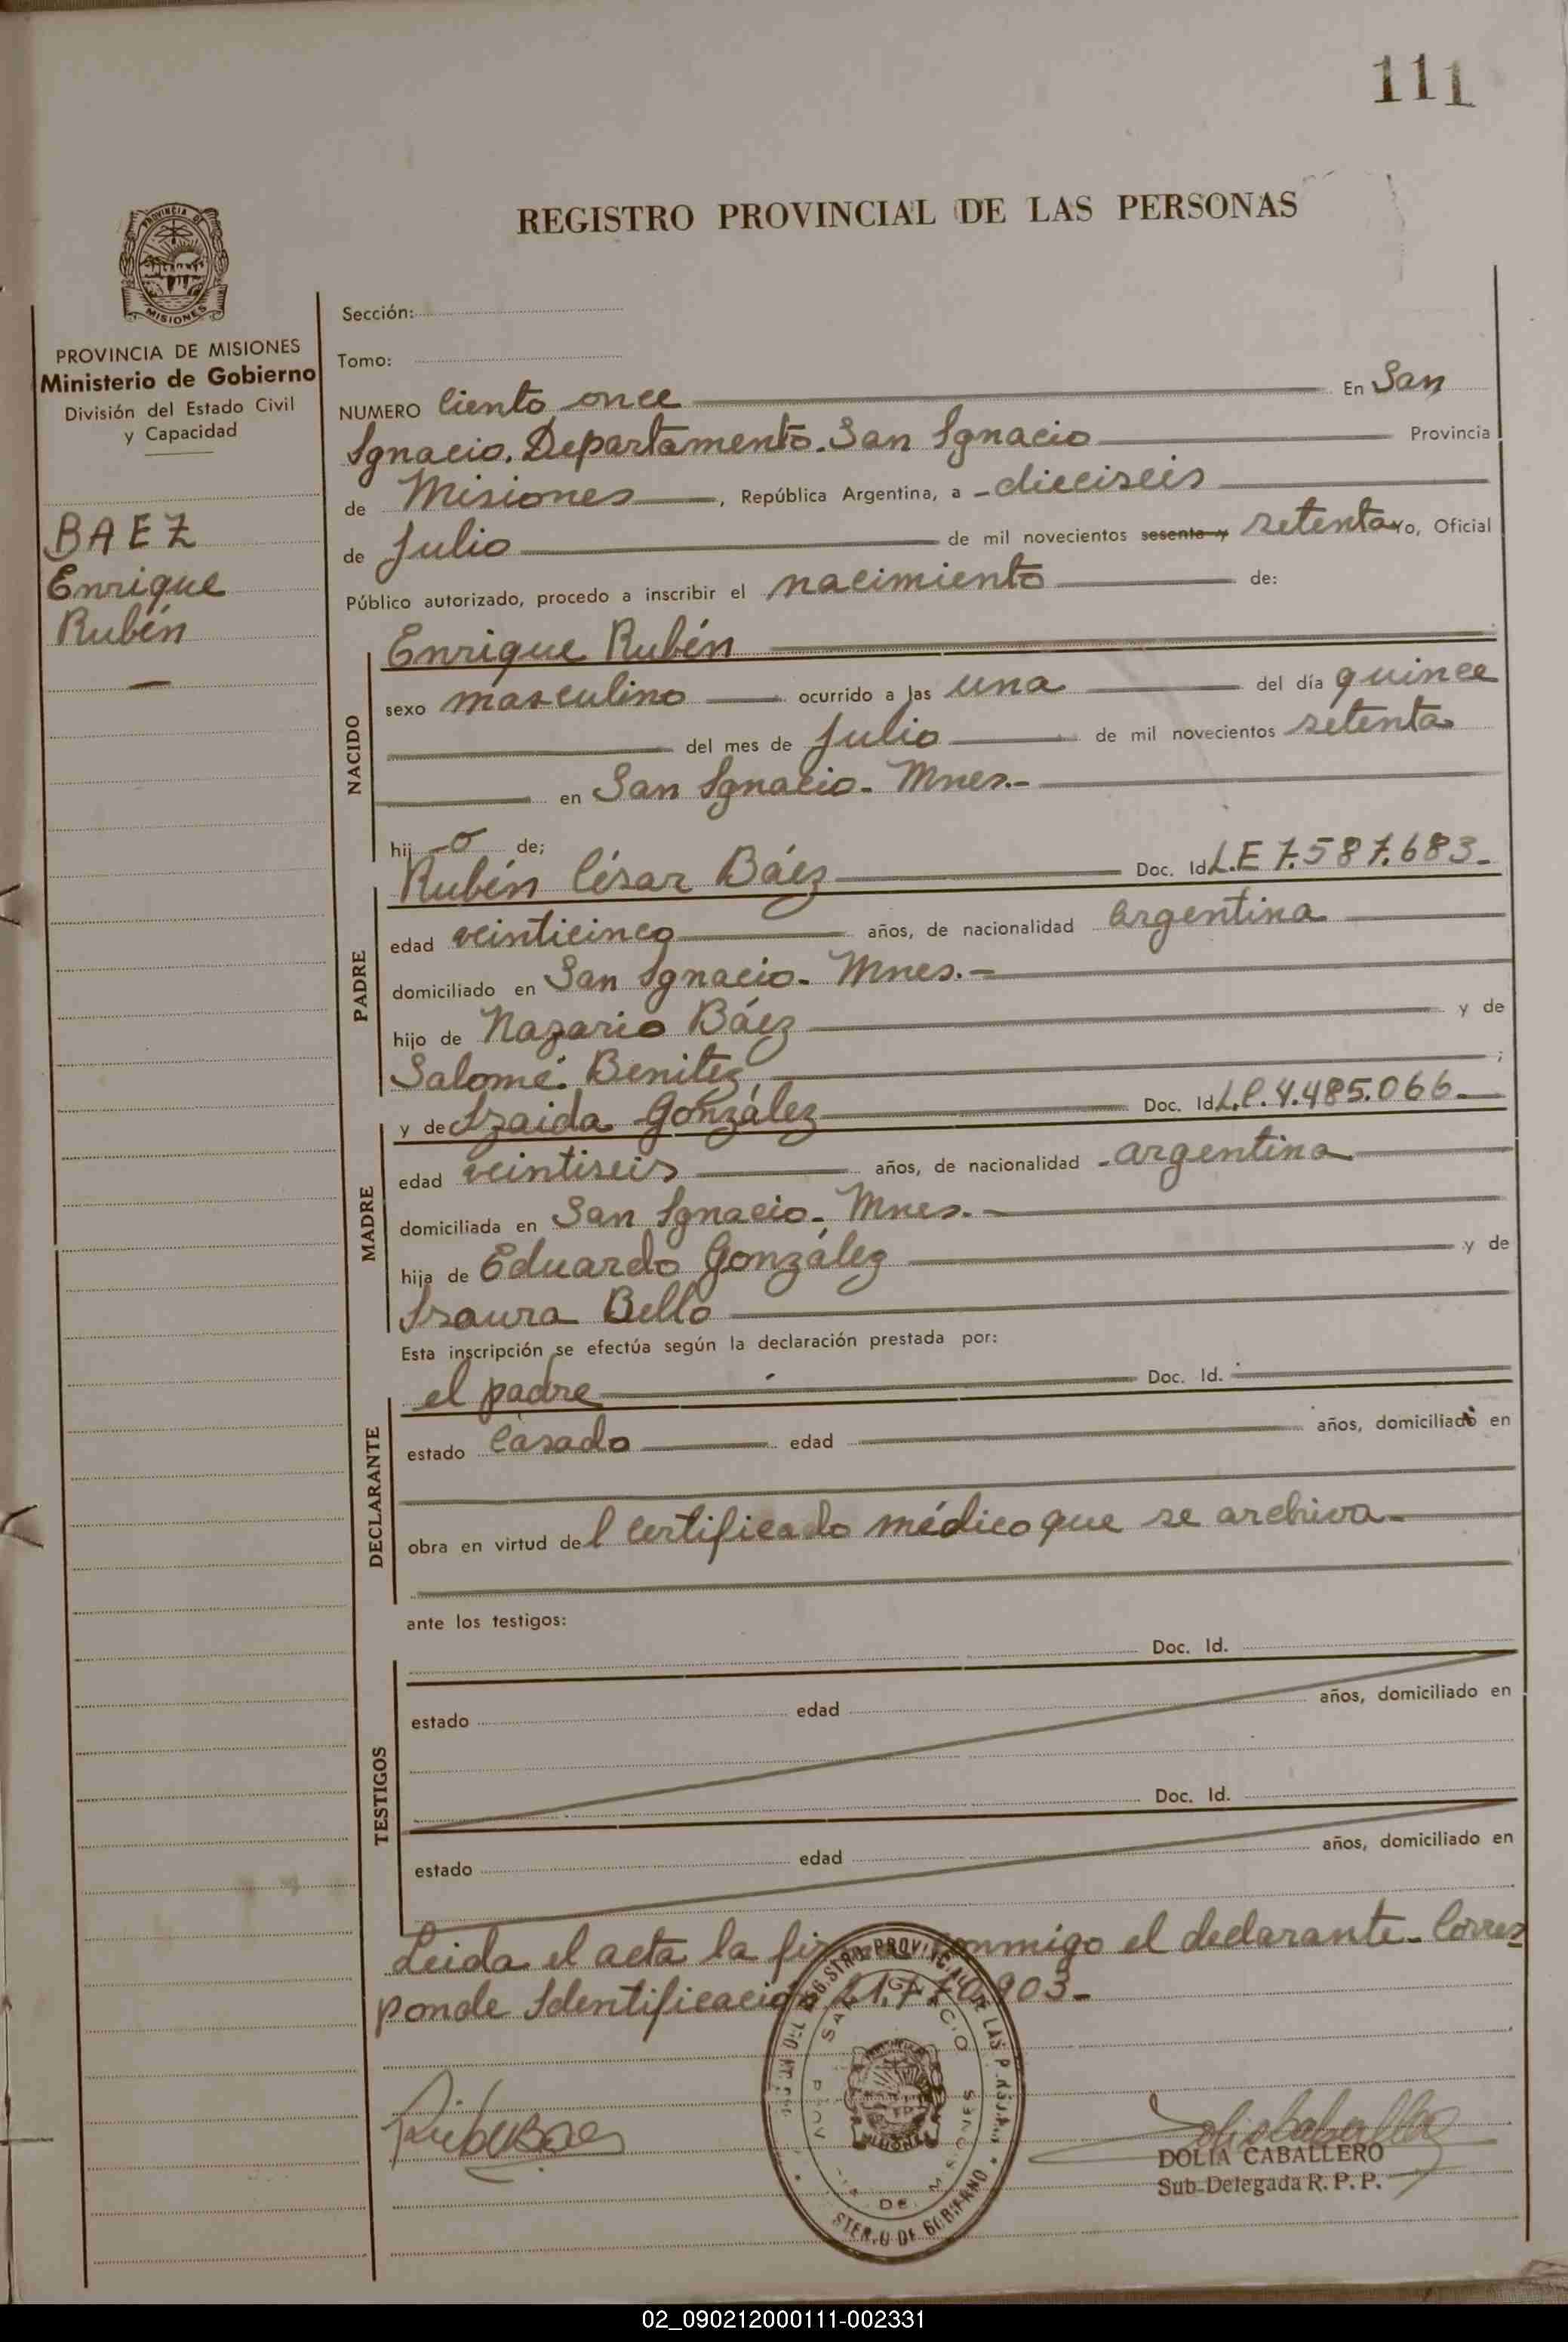 111
REGISTRO PROVINCIAL DE LAS PERSONAS
PROVINCIA DE
MISIONES
PROVINCIA DE MISIONES
Ministerio de Gobierno
División del Estado Civil
y Capacidad
BAEZ
Enrique
Rubén
Sección:
Tomo:
NUMERO Ciento once En San
Ignacio. Departamento. San Ignacio Provincia
de Misiones, República Argentina, a dieciseis
de Julio de mil novecientos sesenta y setenta Yo, Oficial
Público autorizado, procedo a inscribir el nacimiento de:
NACIDO
Enrique Rubén
sexo masculino ocurrido a las una del día quince
del mes de Julio de mil novecientos setenta
en San Ignacio. Mnes.-
hij o de;
PADRE
Rubén César Báez Doc. Id L.E 7.587.683.
edad veinticinco años, de nacionalidad argentina
domiciliado en San Ignacio. Mnes.-
hijo de Nazario Báez y de
Salomé Benitez ;
MADRE
y de Izaida González Doc. Id L.C. 4.485.066.
edad veintiseis años, de nacionalidad argentina
domiciliada en San Ignacio. Mnes.-
hija de Eduardo González y de
Isaura Bello
Esta inscripción se efectúa según la declaración prestada por:
DECLARANTE
el padre Doc. Id.
estado Casado edad años, domiciliado en
obra en virtud del Certificado médico que se archiva.
ante los testigos:
TESTIGOS
Doc. Id.
estado edad años, domiciliado en
Doc. Id.
estado edad años, domiciliado en
Leida el acta la conmigo el declarante. Corres
ponde Identificación 21.770.903.
SAN IGNACIO
PROVINCIA DE MISIONES
MISIONES
DOLIA CABALLERO
Sub-Delegada R. P. P.
02_090212000111-002331